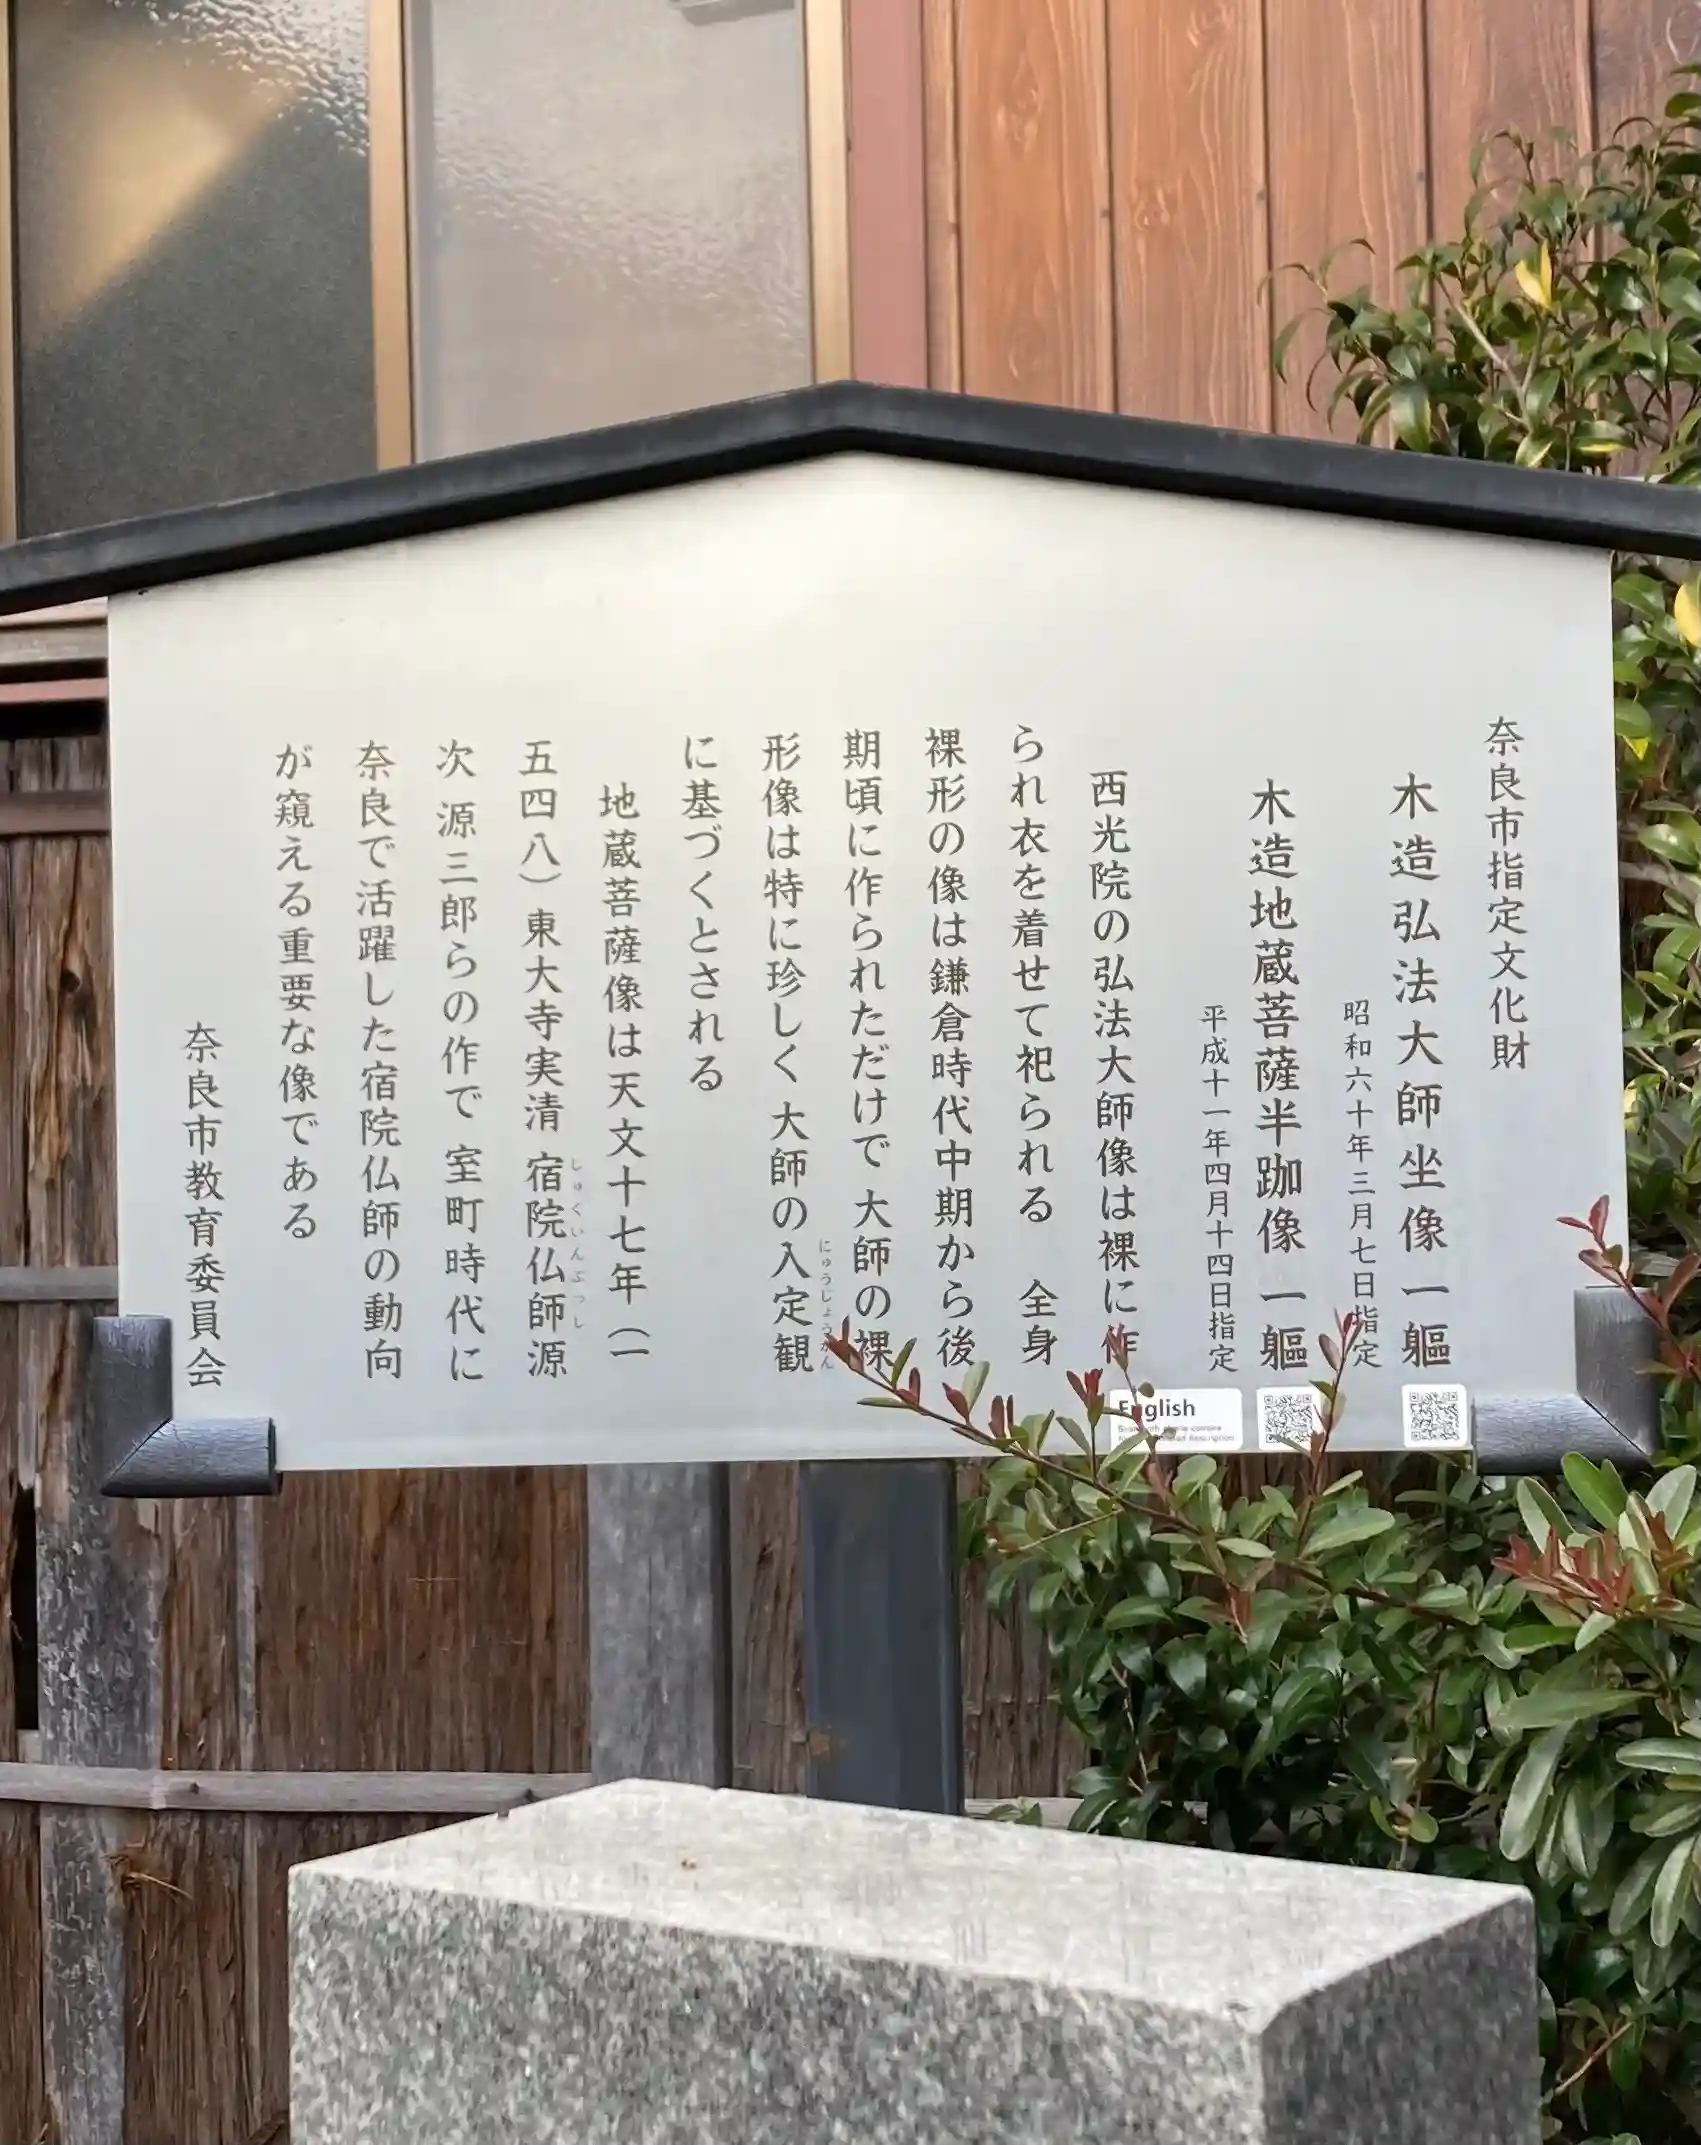 奈良市指定文化財
木造弘法大師坐像 一軀
昭和六十年三月七日指定
木造地蔵菩薩半跏像 一軀
平成十一年四月十四日指定
西光院の弘法大師像は裸に作
られ衣を着せて祀られる 全身
裸形の像は鎌倉時代中期から後
期頃に作られただけで 大師の裸
形像は特に珍しく 大師の入定観
にゅうじょうかん
に基づくとされる
地蔵菩薩像は天文十七年(一
五四八)東大寺実清 宿院仏師源
しゅくいんぶっし
次 源三郎らの作で 室町時代に
奈良で活躍した宿院仏師の動向
が窺える重要な像である
奈良市教育委員会
English